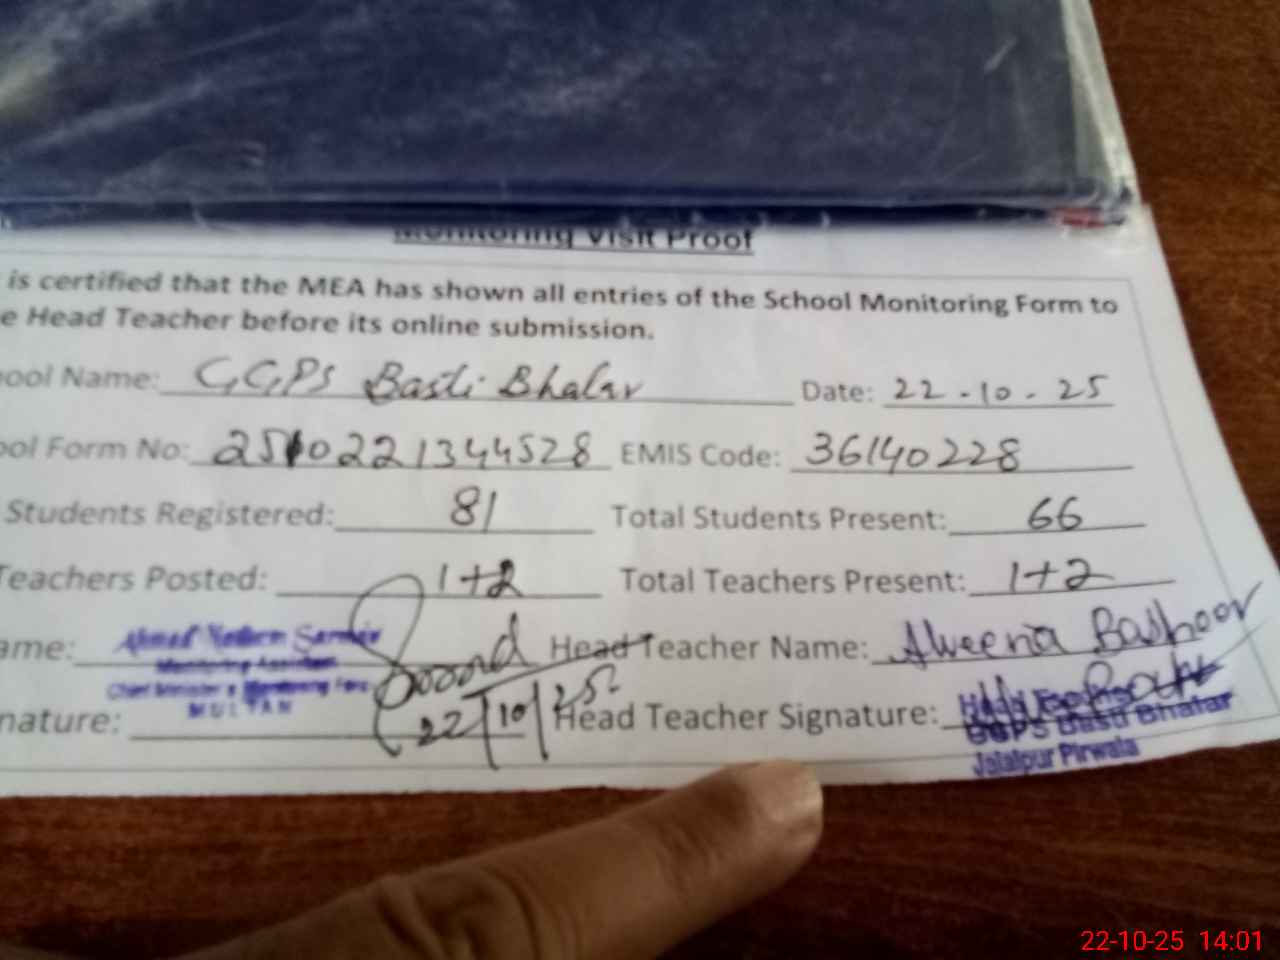 Monitoring Visit Proof
is certified that the MEA has shown all entries of the School Monitoring Form to
e Head Teacher before its online submission.
ool Name: GGPS Basti Bhalar Date: 22-10-25
ool Form No: 2510221344528 EMIS Code: 36140228
Students Registered: 81 Total Students Present: 66
Teachers Posted: 1+2 Total Teachers Present: 1+2
ame: Ahmed Head Teacher Name: Alveena Basheer
Monitoring Assistant
Chief Minister's Monitoring Force
MULTAN
nature: 22/10/25 Head Teacher Signature:
GGPS Basti Bhalar
Jalalpur Pirwala
22-10-25 14:01